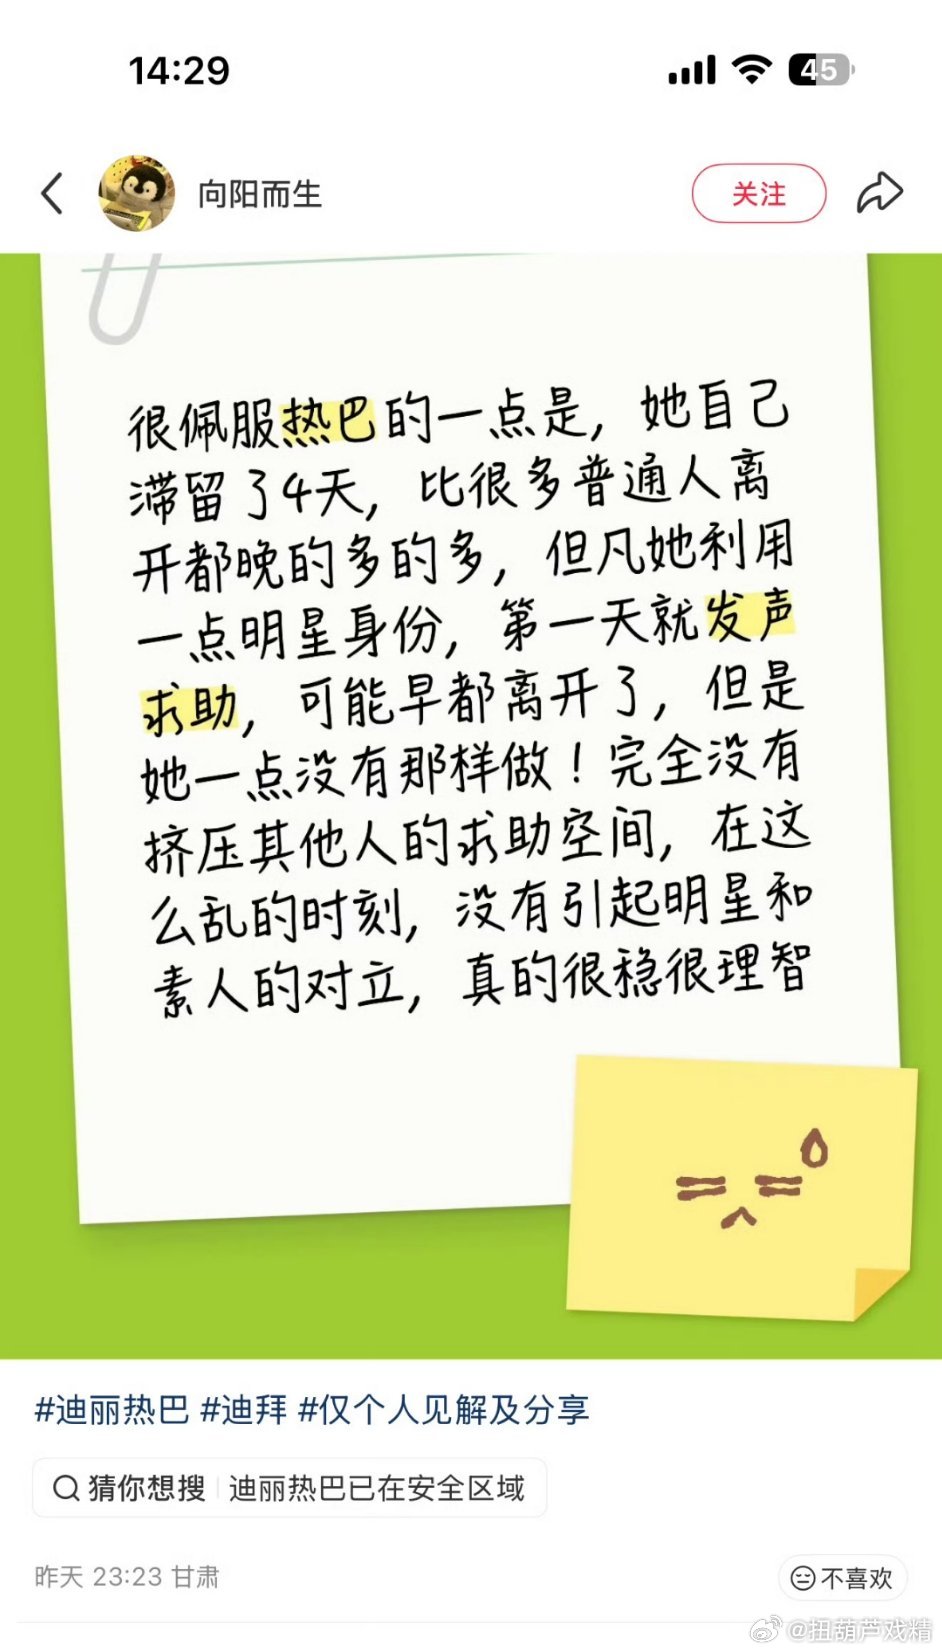 14:29
45
向阳而生
关注
很佩服热巴的一点是，她自己
滞留了4天，比很多普通人离
开都晚的多的多，但凡她利用
一点明星身份，第一天就发声
求助，可能早都离开了，但是
她一点没有那样做！完全没有
挤压其他人的求助空间，在这
么乱的时刻，没有引起明星和
素人的对立，真的很稳很理智
#迪丽热巴 #迪拜 #仅个人见解及分享
猜你想搜 迪丽热巴已在安全区域
昨天 23:23 甘肃
不喜欢
@扭葫芦戏精